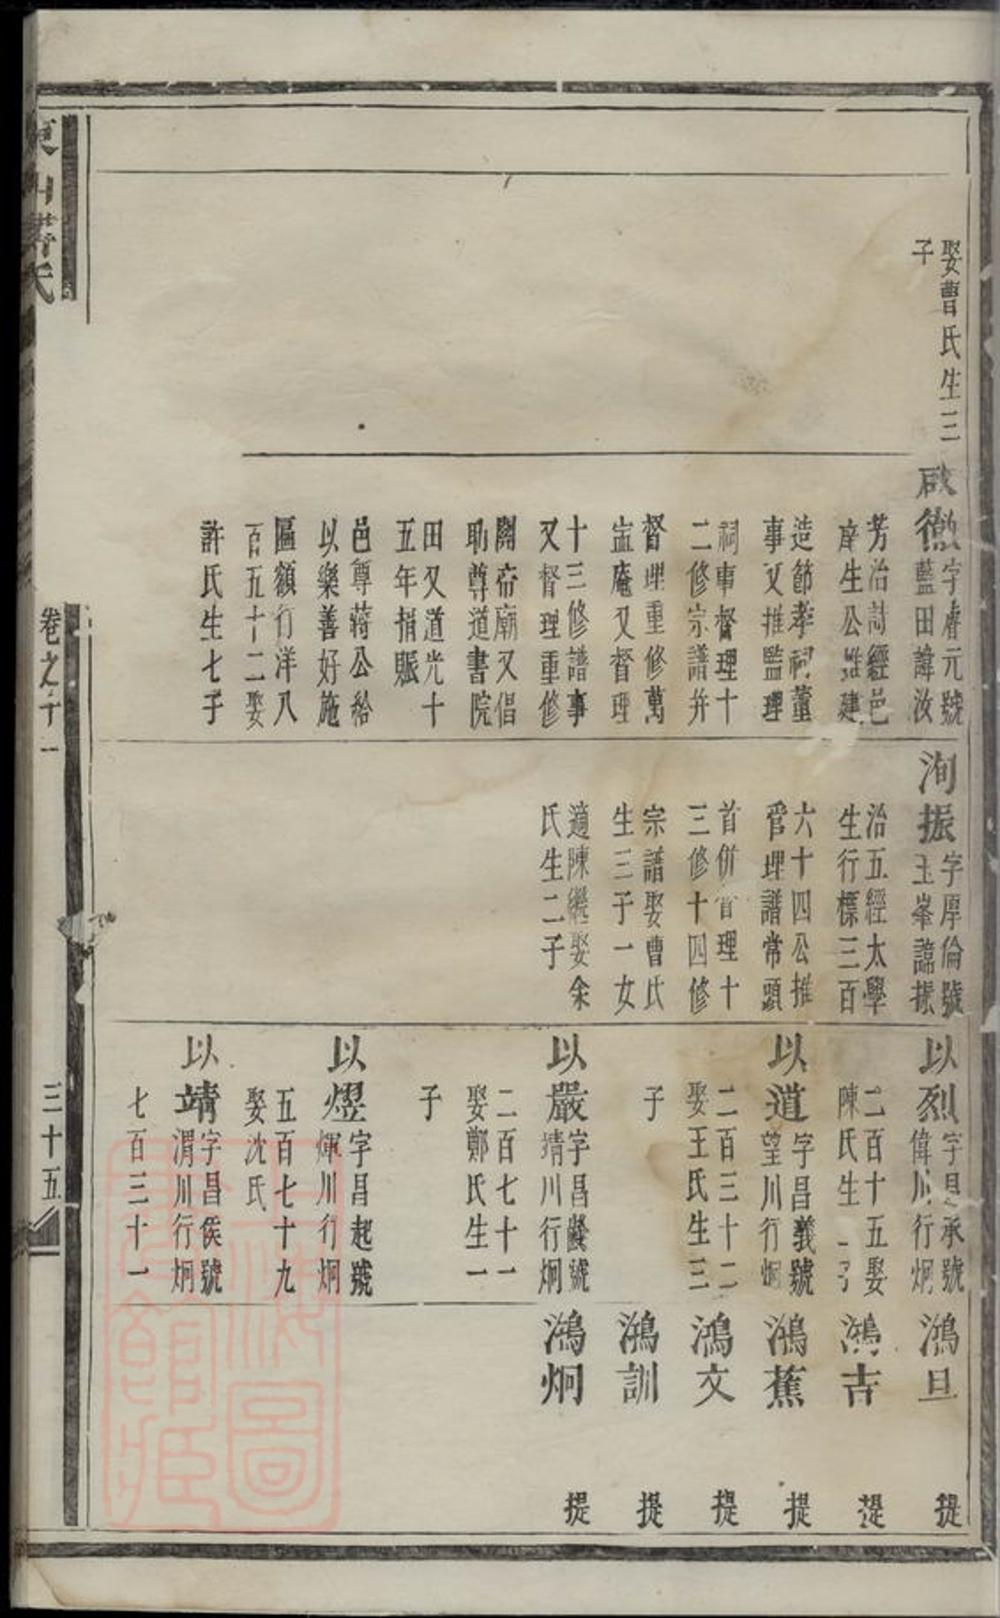 娶曹氏生三
子
啟徽
字睿元號
藍田諱汝
芳治詩經邑
庠生公推建
造節孝祠董
事又推監理
祠事督理十
二修宗譜并
督理重修萬
盂庵又督理
十三修譜事
又督理重修
關帝廟又倡
助尊道書院
田又道光十
五年捐賑
邑尊蔣公給
以樂善好施
區額行洋八
百五十二娶
許氏生七子
洵振
字厚倫號
玉峯諱振
治五經太學
生行標三百
六十四公推
管理譜常頭
首併管理十
三修十四修
宗譜娶曹氏
生三子一女
適陳繼娶余
氏生二子
以烈
字昌承號
偉川行炯
二百十五娶
陳氏生二子
以道
字昌義號
望川行炯
二百三十二
娶王氏生三
子
以嚴
字昌齡號
靖川行炯
二百七十一
娶鄭氏生一
子
以熤
字昌起號
煇川行炯
五百七十九
娶沈氏
以靖
字昌侯號
渭川行炯
七百三十一
鴻旦 提
鴻吉 提
鴻蕉 提
鴻文 提
鴻訓 提
鴻炯 提
卷之十一
三十五
上海圖書館藏